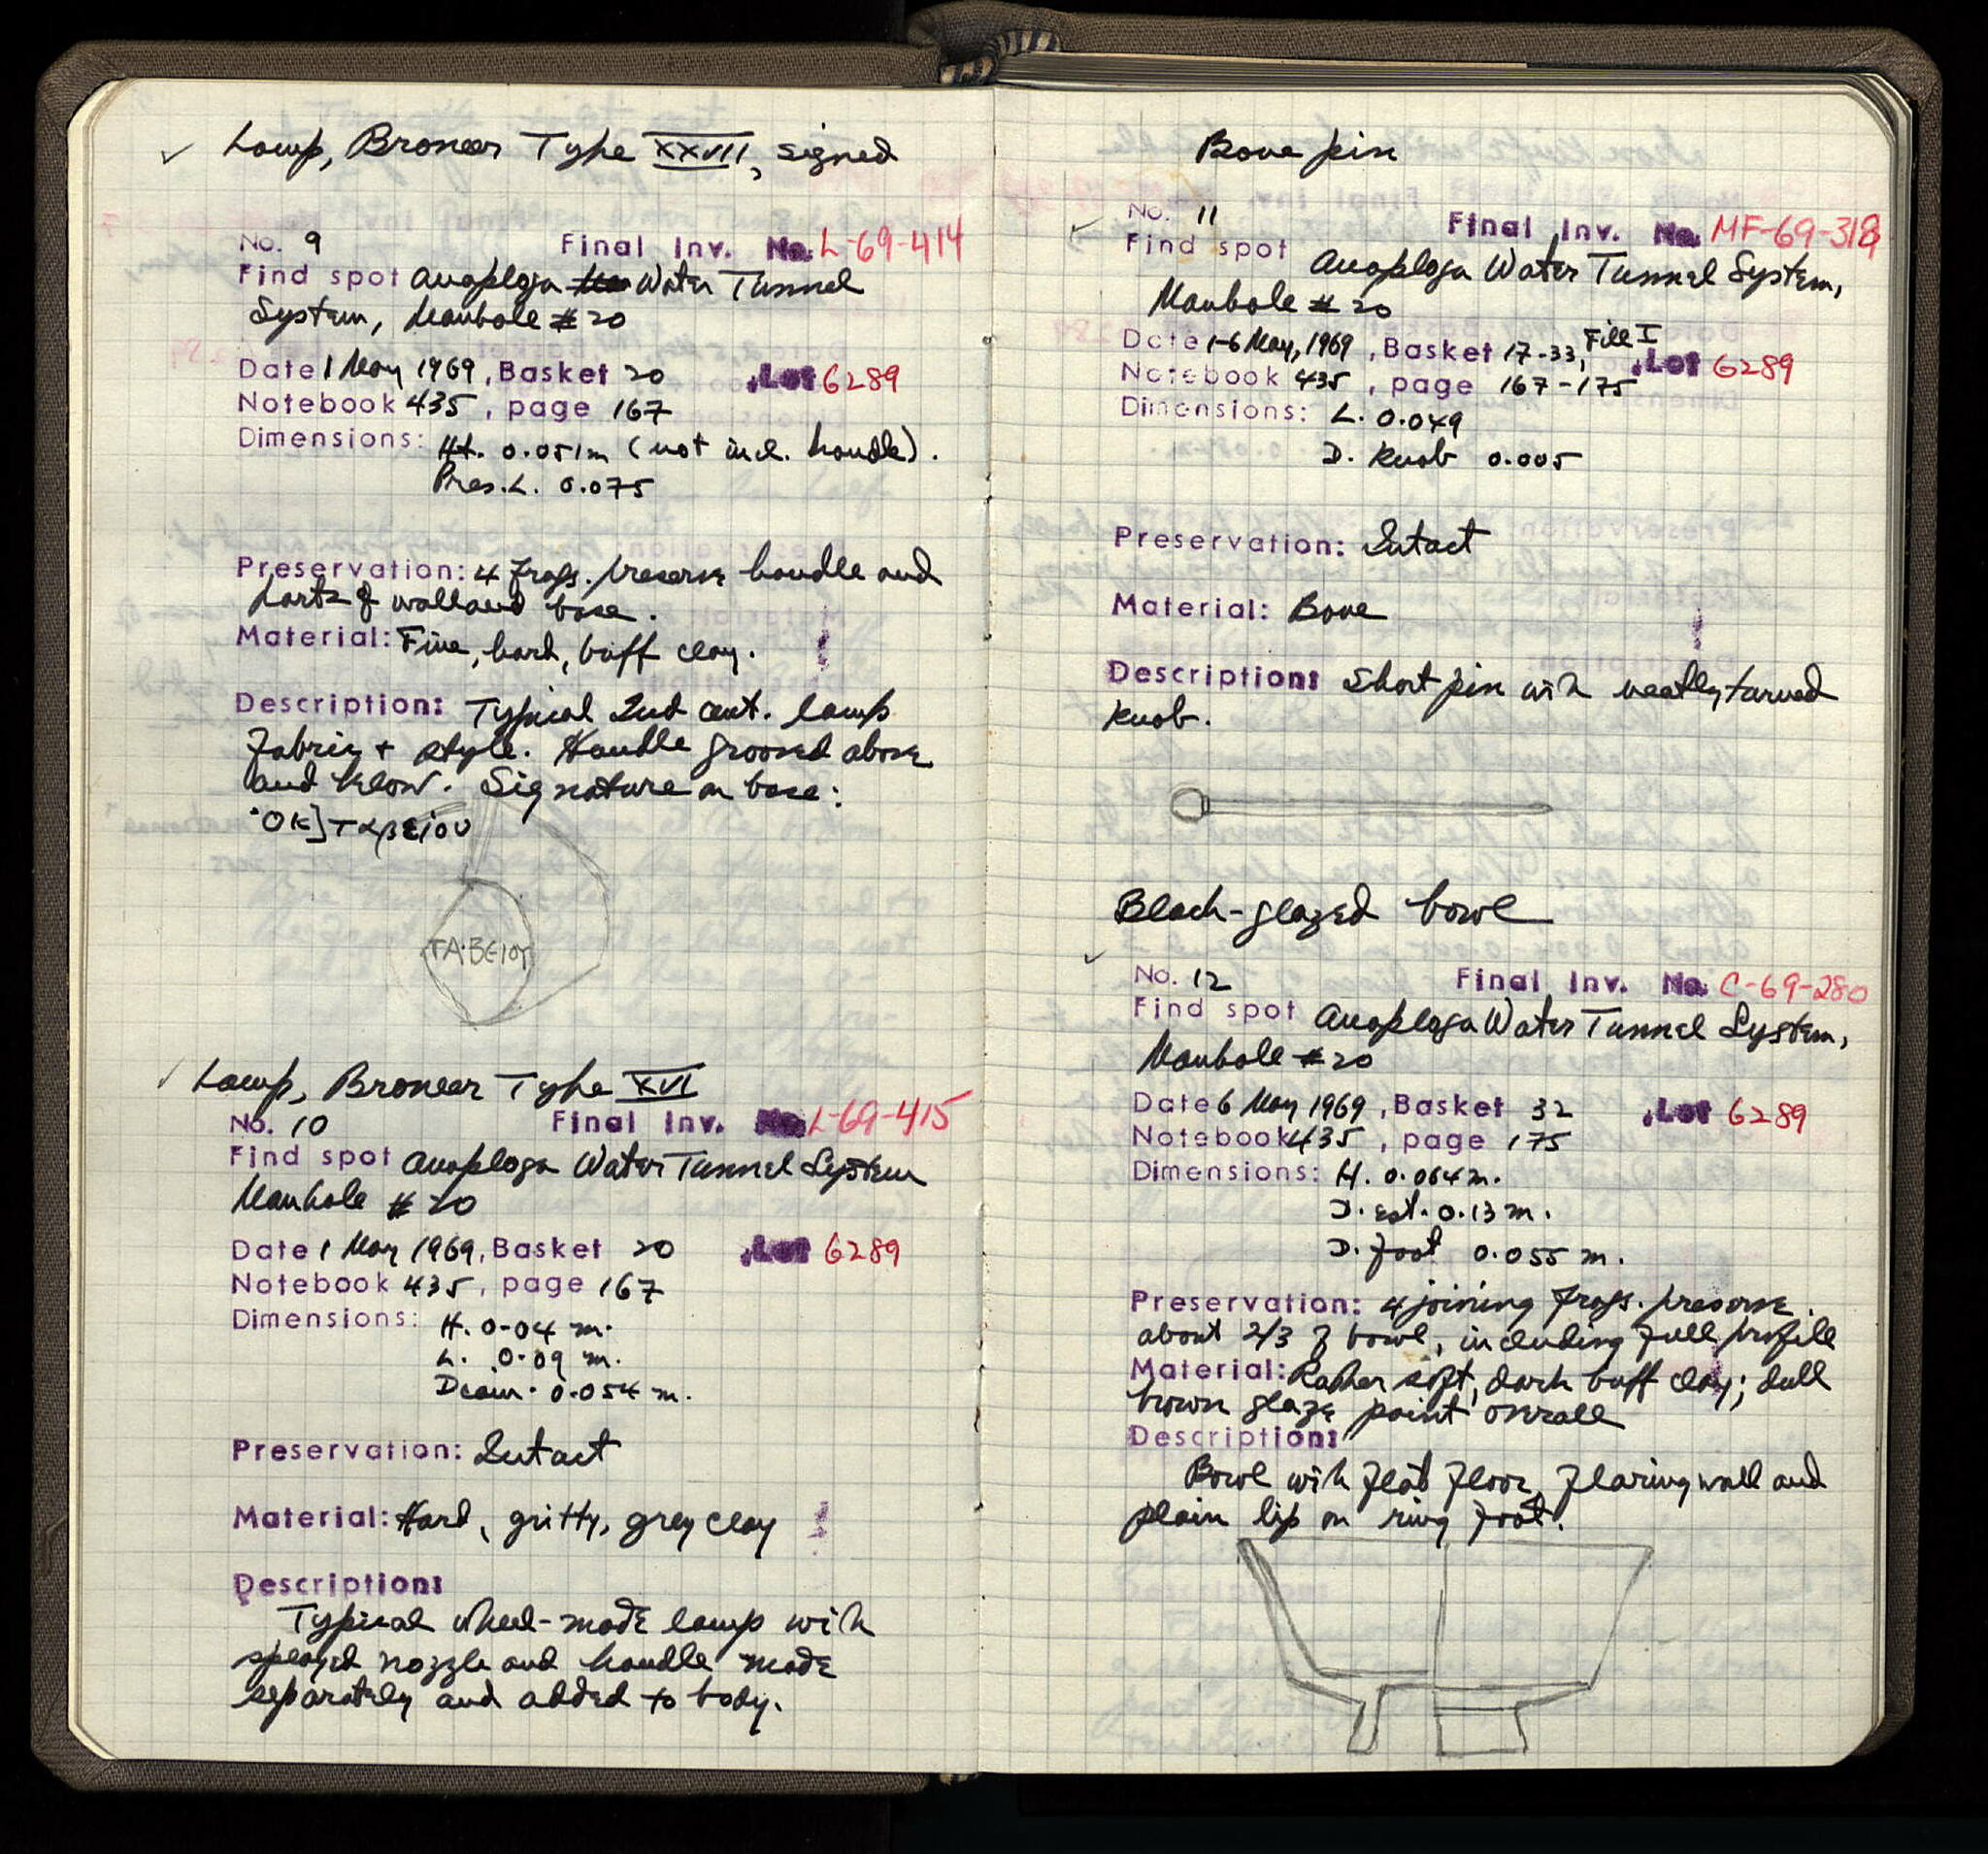 Lamp, Broneer Type XXVII, signed
No. 9 Final Inv. No. L-69-414
Find spot Anaploga Water Tunnel
System, Manhole # 20
Date 1 May 1969, Basket 20 Lot 6289
Notebook 435, page 167
Dimensions: Ht. 0.051m (not incl. handle).
Pres. L. 0.075
Preservation: 4 frags. preserve handle and
parts of wall and base.
Material: Fine, hard, buff clay.
Description: Typical 2nd cent. lamp
fabric + style. Handle grooved above
and below. Signature on base:
ΌΚ]ΤαβΕίου
ΤΑ·ΒΕΙΟΥ
Lamp, Broneer Type XVI
No. 10 Final Inv. No. L-69-415
Find spot Anaploga Water Tunnel System
Manhole # 20
Date 1 May 1969, Basket 20 Lot 6289
Notebook 435, page 167
Dimensions: H. 0.04 m.
L. 0.09 m.
Diam. 0.054 m.
Preservation: Intact
Material: Hard, gritty, grey clay
Description:
Typical wheel-made lamp with
splayed nozzle and handle made
separately and added to body.
Bone pin
No. 11 Final Inv. No. MF-69-318
Find spot Anaploga Water Tunnel System,
Manhole # 20
Date 1-6 May, 1969, Basket 17-33, Fill I Lot 6289
Notebook 435, page 167-175
Dimensions: L. 0.049
D. knob 0.005
Preservation: Intact
Material: Bone
Description: Short pin with neatly turned
knob.
Black-glazed bowl
No. 12 Final Inv. No. C-69-280
Find spot Anaploga Water Tunnel System,
Manhole # 20
Date 6 May 1969, Basket 32 Lot 6289
Notebook 435, page 175
Dimensions: H. 0.064 m.
D. est. 0.13 m.
D. foot 0.055 m.
Preservation: 4 joining frags. preserve
about 2/3 of bowl, including full profile
Material: Rather soft, dark buff clay; dull
brown glaze paint overall
Description:
Bowl with flat floor, flaring wall and
plain lip on ring foot.